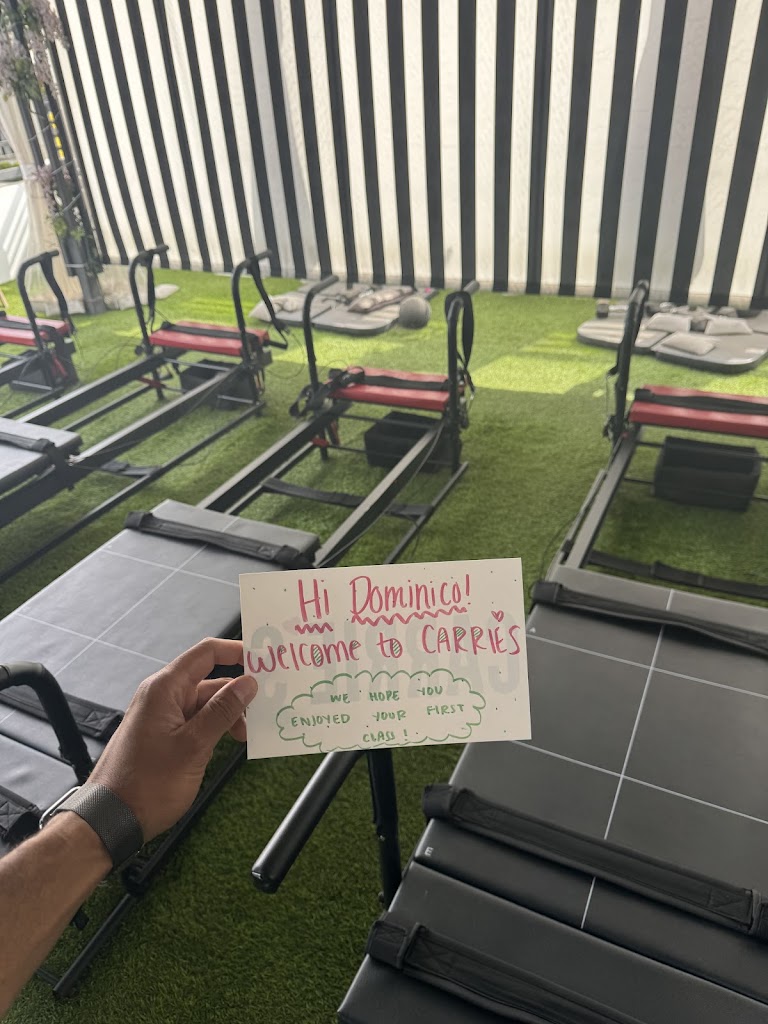 Hi Dominico!
Welcome to CARRIES
WE HOPE YOU
ENJOYED YOUR FIRST
CLASS!
CARRIE'S
E